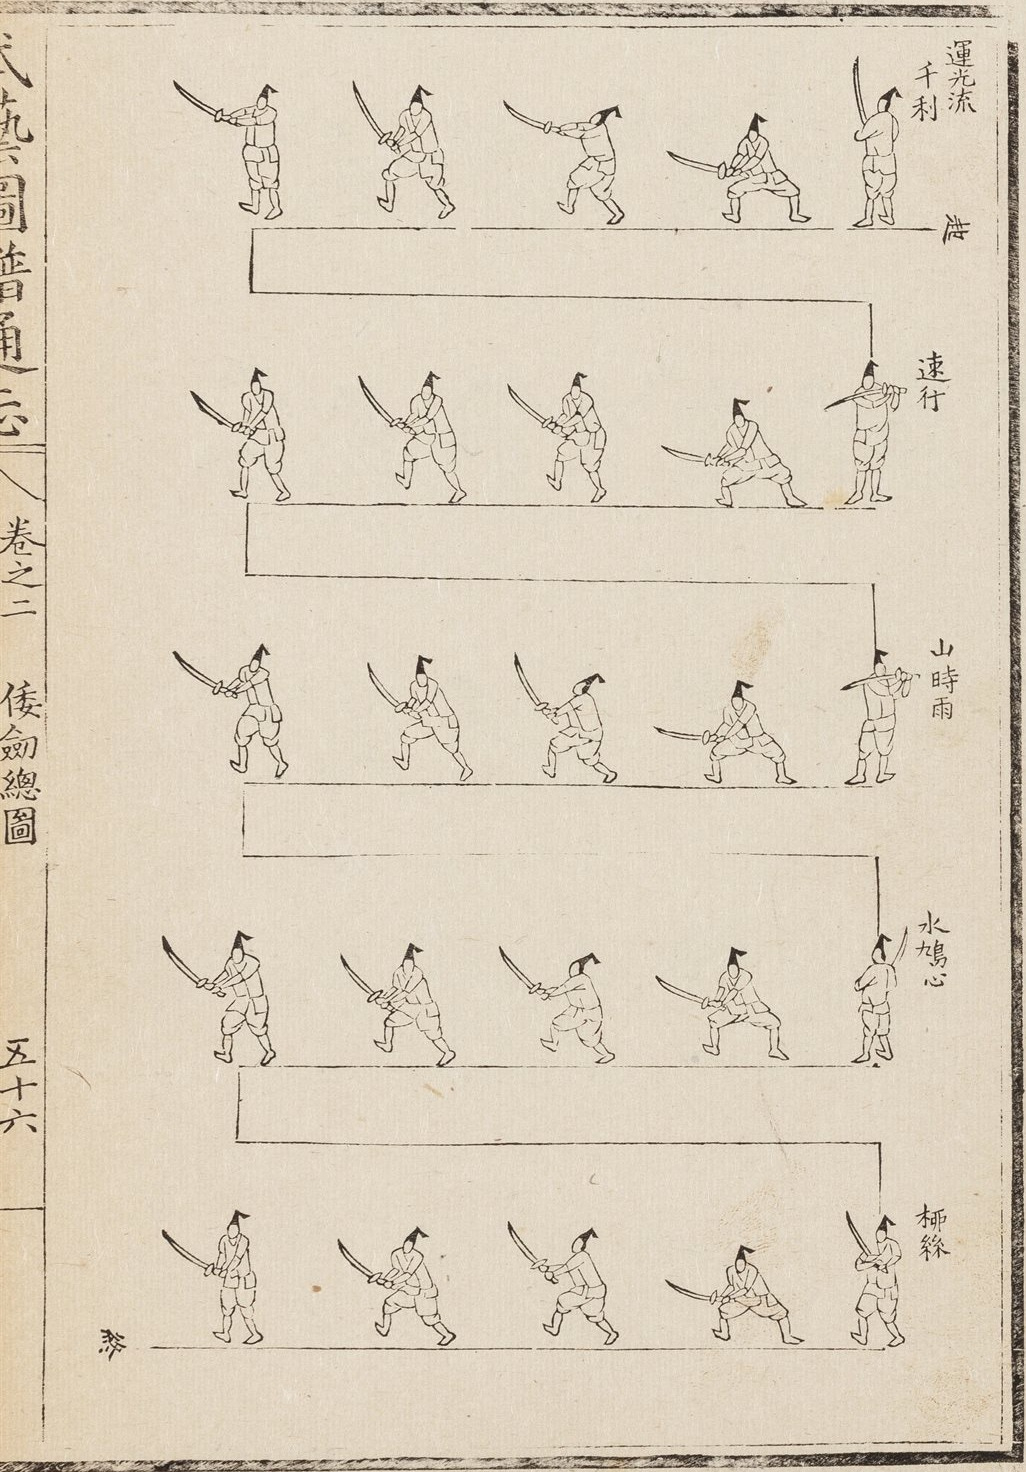 運光流
千利
起
速行
山時雨
水鳩心
桞絲
終
武藝圖譜通志
卷之二
倭劒總圖
五十六